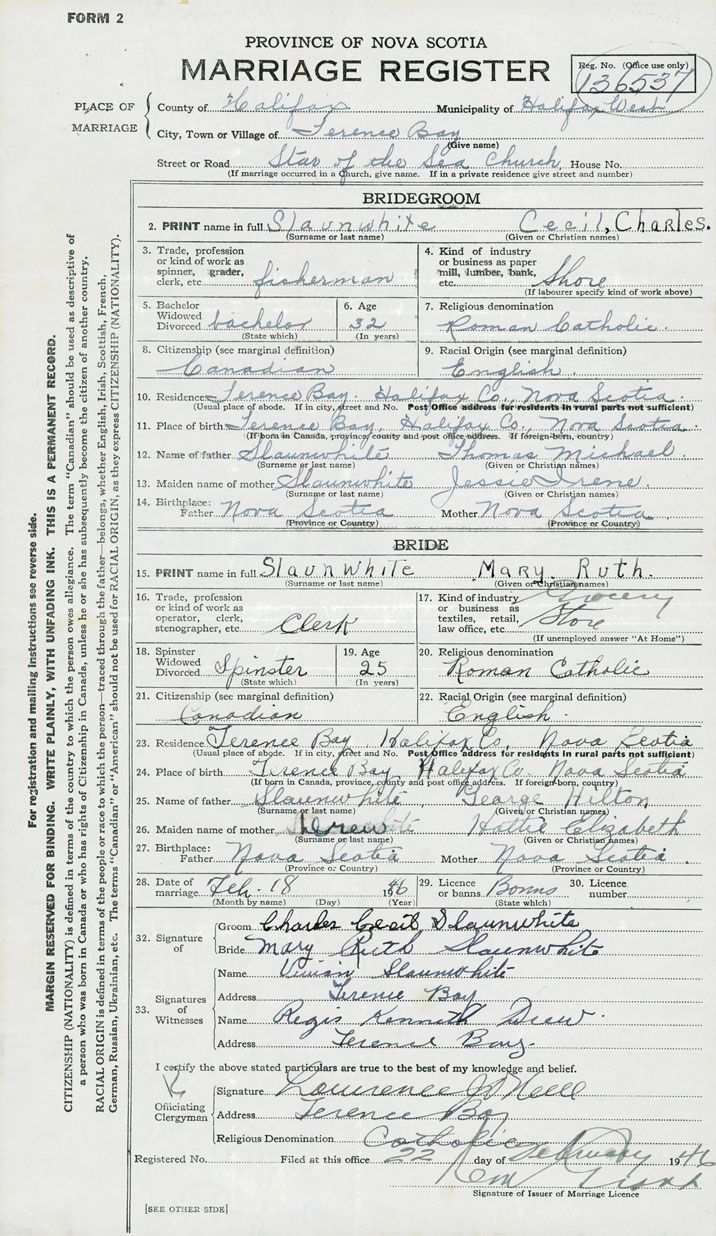 FORM 2
PROVINCE OF NOVA SCOTIA
MARRIAGE REGISTER
Reg. No. (Office use only)
136537
PLACE OF MARRIAGE
County of Halifax Municipality of Halifax West
City, Town or Village of Terence Bay
(Give name)
Street or Road Star of the Sea Church House No.
(If marriage occurred in a Church, give name. If in a private residence give street and number)
BRIDEGROOM
2. PRINT name in full Slaunwhite Cecil, Charles.
(Surname or last name) (Given or Christian names)
3. Trade, profession or kind of work as spinner, grader, clerk, etc. fisherman
4. Kind of industry or business as paper mill, lumber, bank, etc. Shore
(If labourer specify kind of work above)
5. Bachelor Widowed Divorced bachelor
(State which)
6. Age 32
(In years)
7. Religious denomination
Roman Catholic.
8. Citizenship (see marginal definition)
Canadian
9. Racial Origin (see marginal definition)
English.
10. Residence Terence Bay. Halifax Co., Nova Scotia
(Usual place of abode. If in city, street and No. Post Office address for residents in rural parts not sufficient)
11. Place of birth Terence Bay, Halifax Co., Nova Scotia.
(If born in Canada, province, county and post office address. If foreign-born, country)
12. Name of father Slaunwhite Thomas Michael.
(Surname or last name) (Given or Christian names)
13. Maiden name of mother Slaunwhite Jessie Irene.
(Surname or last name) (Given or Christian names)
14. Birthplace: Father Nova Scotia Mother Nova Scotia
(Province or Country) (Province or Country)
BRIDE
15. PRINT name in full Slaunwhite Mary. Ruth.
(Surname or last name) (Given or Christian names)
16. Trade, profession or kind of work as operator, clerk, stenographer, etc. Clerk
17. Kind of industry or business as textiles, retail, law office, etc. Grocery Store
(If unemployed answer "At Home")
18. Spinster Widowed Divorced Spinster
(State which)
19. Age 25
(In years)
20. Religious denomination
Roman Catholic
21. Citizenship (see marginal definition)
Canadian
22. Racial Origin (see marginal definition)
English.
23. Residence Terence Bay, Halifax Co. Nova Scotia
(Usual place of abode. If in city, street and No. Post Office address for residents in rural parts not sufficient)
24. Place of birth Terence Bay Halifax Co. Nova Scotia
(If born in Canada, province, county and post office address. If foreign-born, country)
25. Name of father Slaunwhite George Hilton
(Surname or last name) (Given or Christian names)
26. Maiden name of mother Drew Hattie Elizabeth
(Surname or last name) (Given or Christian names)
27. Birthplace: Father Nova Scotia Mother Nova Scotia.
(Province or Country) (Province or Country)
28. Date of marriage Feb. 18 1946
(Month by name) (Day) (Year)
29. Licence or banns Banns
30. Licence number
32. Signature of
Groom Charles Cecil Slaunwhite
Bride Mary Ruth Slaunwhite
33. Signatures of Witnesses
Name Vivian Slaunwhite
Address Terence Bay
Name Regis Kenneth Drew.
Address Terence Bay.
I certify the above stated particulars are true to the best of my knowledge and belief.
Officiating Clergyman
Signature Lawrence O'Neill
Address Terence Bay
Religious Denomination Catholic
Registered No. Filed at this office 22 day of February 1946
Signature of Issuer of Marriage Licence
[SEE OTHER SIDE]
For registration and mailing instructions see reverse side.
MARGIN RESERVED FOR BINDING. WRITE PLAINLY, WITH UNFADING INK. THIS IS A PERMANENT RECORD.
CITIZENSHIP (NATIONALITY) is defined in terms of the country to which the person owes allegiance. The term "Canadian" should be used as descriptive of
a person who was born in Canada or who has rights of Citizenship in Canada, unless he or she has subsequently become the citizen of another country.
RACIAL ORIGIN is defined in terms of the people or race to which the person—traced through the father—belongs, whether English, Irish, Scottish, French,
German, Russian, Ukrainian, etc. The terms "Canadian" or "American" should not be used for RACIAL ORIGIN, as they express CITIZENSHIP (NATIONALITY).